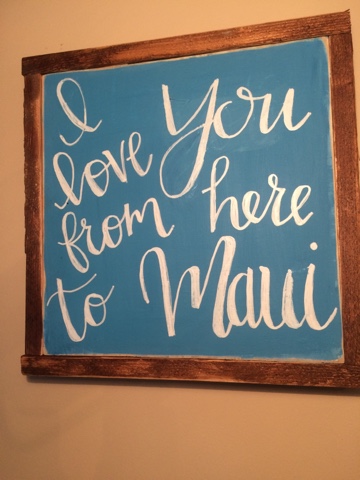 I
love You
from here
to Maui